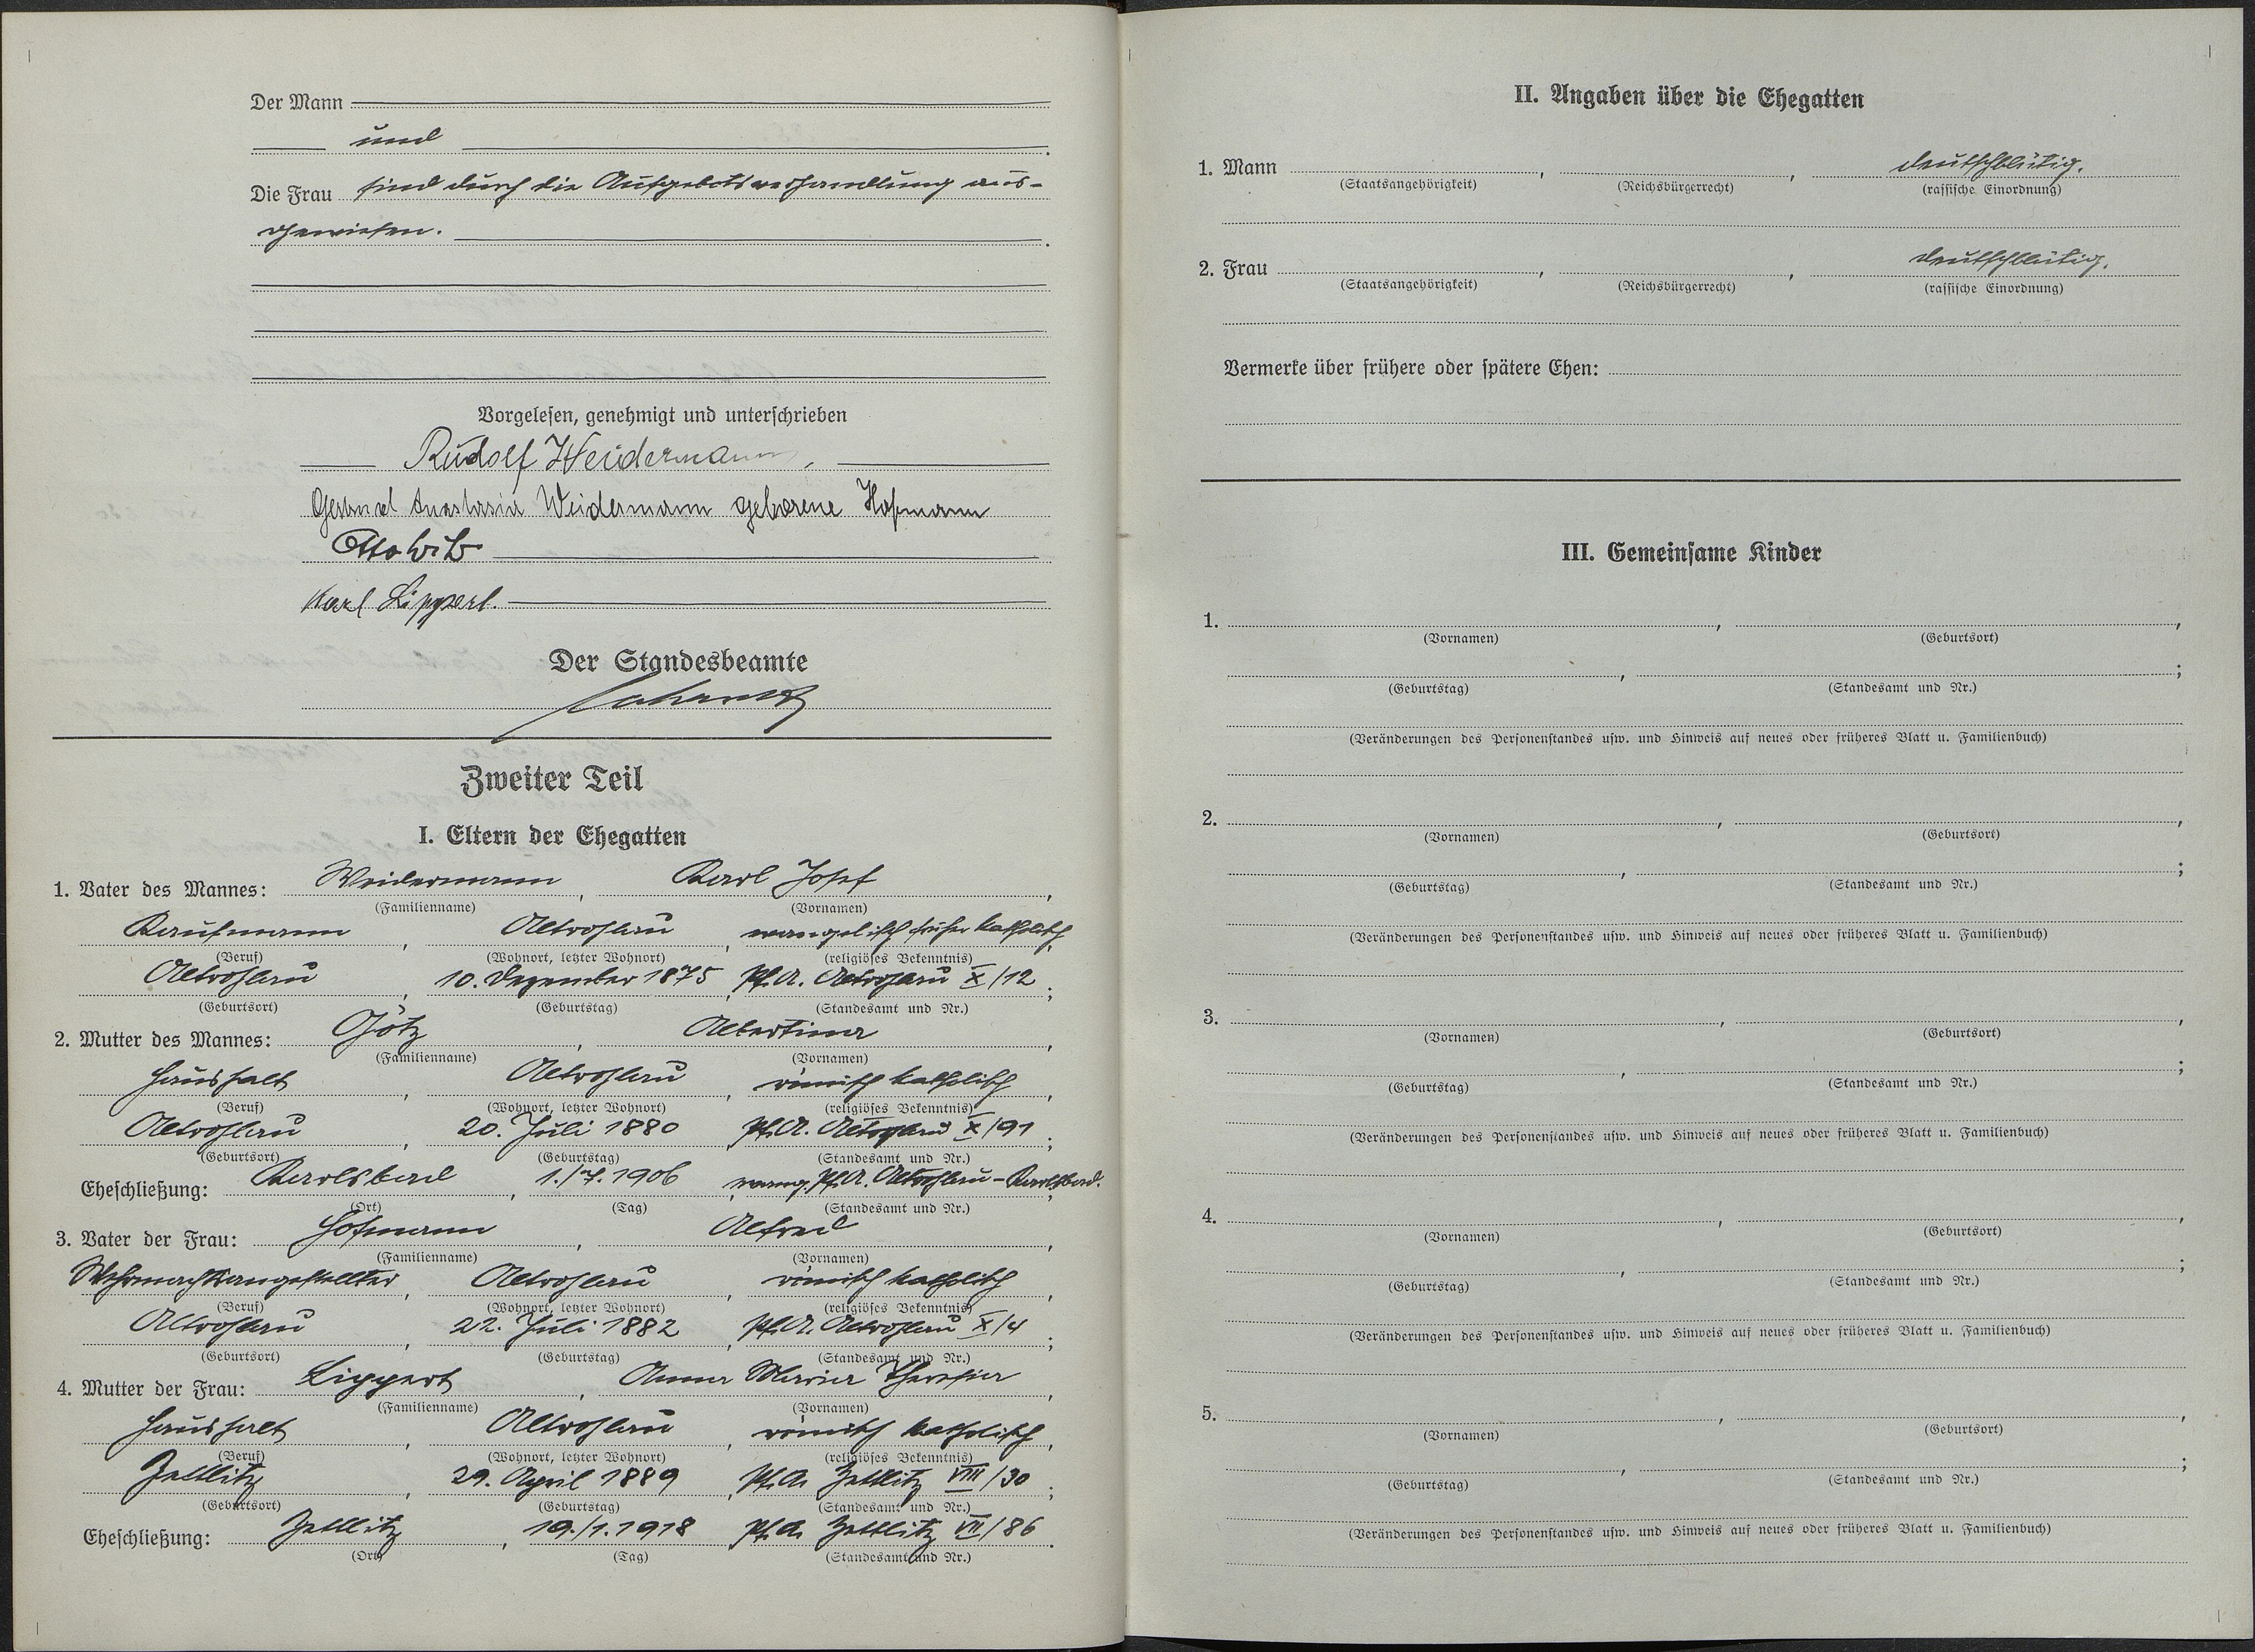 Der Mann
und
Die Frau sind durch die Aufgebotsverhandlung aus-
gewiesen.
Vorgelesen, genehmigt und unterschrieben
Rudolf Weidermann.
Anastasia Weidermann geborene Hofmann
Otto
Karl Lippert.
Der Standesbeamte
Zweiter Teil
I. Eltern der Ehegatten
1. Vater des Mannes: Weidermann, Karl Josef,
(Familienname) (Vornamen)
Kaufmann, Altrohlau, evangelisch früher katholisch
(Beruf) (Wohnort, letzter Wohnort) (religiöses Bekenntnis)
Altrohlau, 10. Dezember 1875, Pf. A. Altrohlau X/12;
(Geburtsort) (Geburtstag) (Standesamt und Nr.)
2. Mutter des Mannes: Götz, Albertina,
(Familienname) (Vornamen)
Haushalt, Altrohlau, römisch katholisch,
(Beruf) (Wohnort, letzter Wohnort) (religiöses Bekenntnis)
Altrohlau, 20. Juli 1880, Pf. A. Altrohlau X/91;
(Geburtsort) (Geburtstag) (Standesamt und Nr.)
Eheschließung: Karlsbad, 1./7. 1906, evang. Pf. A. Altrohlau-Karlsbad.
(Ort) (Tag) (Standesamt und Nr.)
3. Vater der Frau: Hofmann, Alfred,
(Familienname) (Vornamen)
Wehrmachtsangestellter, Altrohlau, römisch katholisch,
(Beruf) (Wohnort, letzter Wohnort) (religiöses Bekenntnis)
Altrohlau, 22. Juli 1882, Pf. A. Altrohlau X/4;
(Geburtsort) (Geburtstag) (Standesamt und Nr.)
4. Mutter der Frau: Lippert, Anna Maria Theresia,
(Familienname) (Vornamen)
Haushalt, Altrohlau, römisch katholisch,
(Beruf) (Wohnort, letzter Wohnort) (religiöses Bekenntnis)
Zettlitz, 29. April 1889, Pf. A. Zettlitz VIII/30;
(Geburtsort) (Geburtstag) (Standesamt und Nr.)
Eheschließung: Zettlitz, 19./1. 1918, Pf. A. Zettlitz VII/86.
(Ort) (Tag) (Standesamt und Nr.)
II. Angaben über die Ehegatten
1. Mann , , deutschblütig.
(Staatsangehörigkeit) (Reichsbürgerrecht) (rassische Einordnung)
2. Frau , , deutschblütig.
(Staatsangehörigkeit) (Reichsbürgerrecht) (rassische Einordnung)
Vermerke über frühere oder spätere Ehen:
III. Gemeinsame Kinder
1. , ,
(Vornamen) (Geburtsort)
, ;
(Geburtstag) (Standesamt und Nr.)
(Veränderungen des Personenstandes usw. und Hinweis auf neues oder früheres Blatt u. Familienbuch)
2. , ,
(Vornamen) (Geburtsort)
, ;
(Geburtstag) (Standesamt und Nr.)
(Veränderungen des Personenstandes usw. und Hinweis auf neues oder früheres Blatt u. Familienbuch)
3. , ,
(Vornamen) (Geburtsort)
, ;
(Geburtstag) (Standesamt und Nr.)
(Veränderungen des Personenstandes usw. und Hinweis auf neues oder früheres Blatt u. Familienbuch)
4. , ,
(Vornamen) (Geburtsort)
, ;
(Geburtstag) (Standesamt und Nr.)
(Veränderungen des Personenstandes usw. und Hinweis auf neues oder früheres Blatt u. Familienbuch)
5. , ,
(Vornamen) (Geburtsort)
, ;
(Geburtstag) (Standesamt und Nr.)
(Veränderungen des Personenstandes usw. und Hinweis auf neues oder früheres Blatt u. Familienbuch)